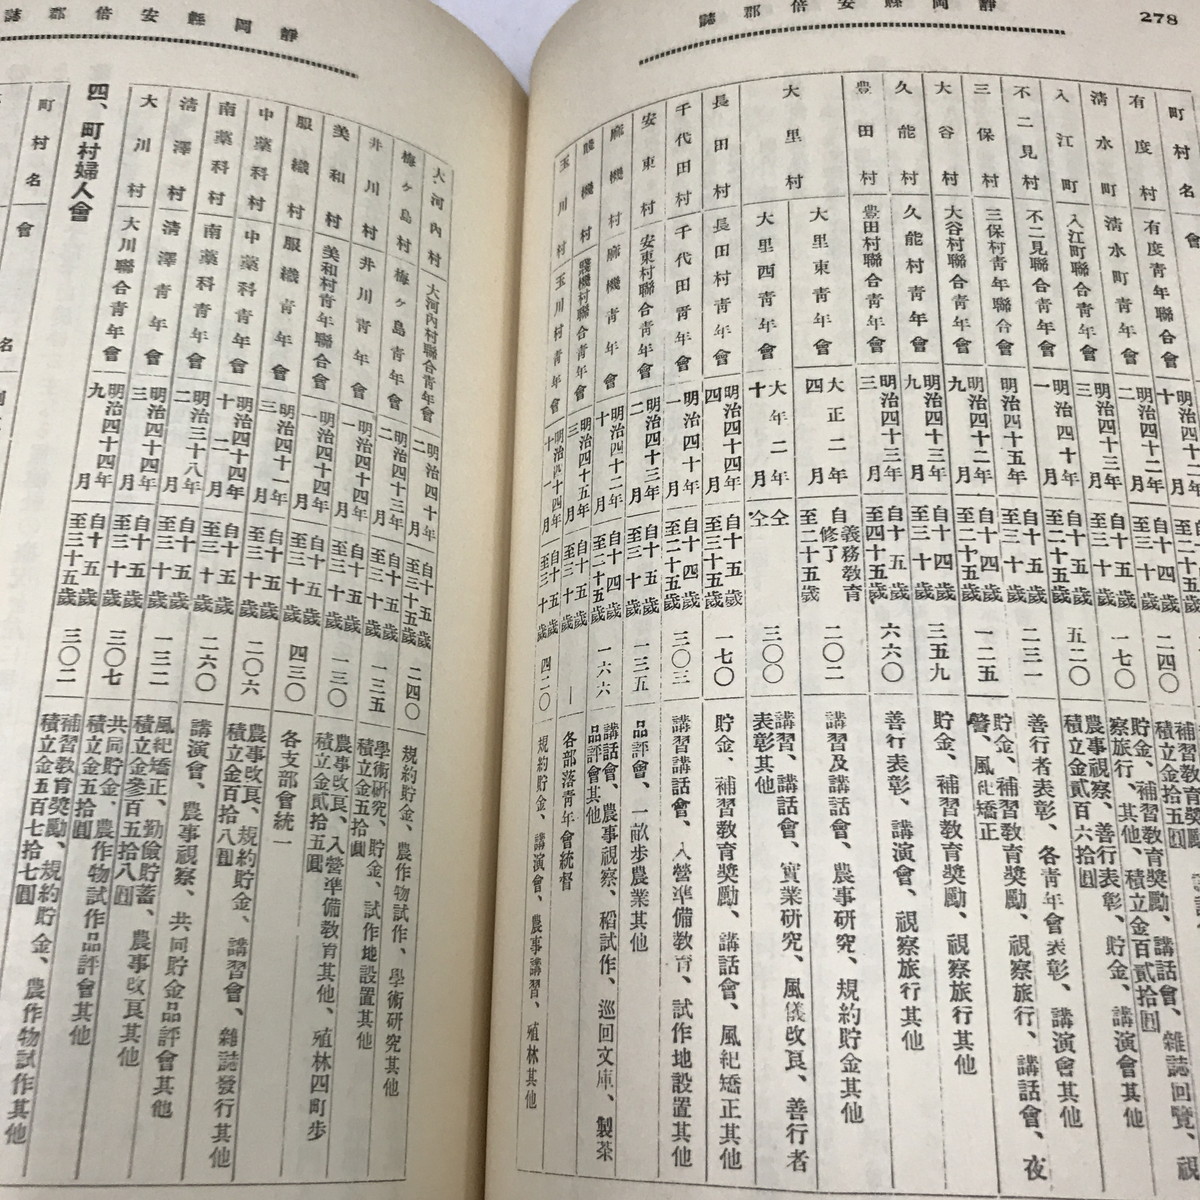 靜岡縣安倍郡誌
278
町村名
有度村 有度青年聯合會 明治四十二年十月 二四〇
清水町 清水町青年會 明治四十二年二月 自十五歳至三十歳 一七〇
察旅行、其他、積立金百貳拾圓
入江町 入江町聯合青年會 明治四十三年三月 五二〇 農事視察、善行表彰、貯金、講演會其他
積立金貳百六拾圓
不二見村 不二見聯合青年會 明治四十年一月 二三一 善行者表彰、各青年會表彰、講演會其他
三保村 三保村青年聯合會 明治四十五年 一二五 貯金、補習教育獎勵、視察旅行、講話會、夜
警、風紀矯正
大谷村 大谷村聯合青年會 明治四十二年九月 三五九 貯金、補習教育獎勵、視察旅行其他
久能村 久能村青年會 明治四十三年九月 六六〇 善行表彰、講演會、視察旅行其他
豊田村 豊田村聯合青年會 明治四十三年三月 二〇二 講習及講話會、農事研究、規約貯金其他
大里村 大里東青年會 大正二年四月 自義務教育修了至二十五歳
大里西青年會 大年二年十月 仝仝 三〇〇 講習、講話會、實業研究、風儀改良、善行者
表彰其他
長田村 長田村青年會 明治四十四年四月 自十五歳至三十五歳 一七〇 貯金、補習教育獎勵、講話會、風紀矯正其他
千代田村 千代田青年會 明治四十年一月 自十四歳至二十五歳 三〇三 講習講話會、入營準備教育、試作地設置其他
安東村 安東村聯合青年會 明治四十三年二月 自十五歳至三十歳 一三五 品評會、一畝歩農業其他
麻機村 麻機青年會 明治四十二年十月 自十四歳至二十五歳 一六六 講話會、農事視察、稻試作、巡回文庫、製茶
品評會其他
賤機村 賤機村聯合青年會 明治四十五年三月 自十五歳至三十歳 — 各部落青年會統督
玉川村 玉川村青年會 明治四十四年十一月 自十五歳至三十歳 四二〇 規約貯金、講演會、農事講習、殖林其他
靜岡縣安倍郡誌
大河內村 大河內村聯合青年會 明治四十年二月 自十五歳至三十五歳 二四〇 規約貯金、農作物試作、學術研究其他
梅ケ島村 梅ケ島青年會 明治四十三年二月 自十五歳至三十歳 一三五 學術研究、貯金、試作地設置其他
積立金五拾圓
井川村 井川青年會 明治四十四年一月 自十五歳至三十歳 一三〇 農事改良、入營準備教育其他、殖林四町歩
積立金貳拾五圓
美和村 美和村青年聯合會 明治四十四年一月 自十五歳至三十歳 四三〇 各支部會統一
服織村 服織青年會 明治四十一年三月 自十五歳至三十歳 二〇六 農事改良、規約貯金、講習會、雜誌發行其他
積立金百拾八圓
中藁科村 中藁科青年會 明治四十四年十二月 自十五歳至三十歳 二六〇 講演會、農事視察、共同貯金品評會其他
南藁科村 南藁科青年會 明治三十八年二月 自十五歳至三十歳 一三二 風紀矯正、勤儉貯蓄、農事改良其他
積立金參百五拾八圓
清澤村 清澤青年會 明治四十四年三月 自十五歳至三十歳 三〇七 共同貯金、農作物試作品評會其他
積立金五拾圓
大川村 大川聯合青年會 明治四十四年九月 自十五歳至三十五歳 三〇二 補習教育獎勵、規約貯金、農作物試作其他
積立金五百七拾七圓
四、町村婦人會
町村名 會名